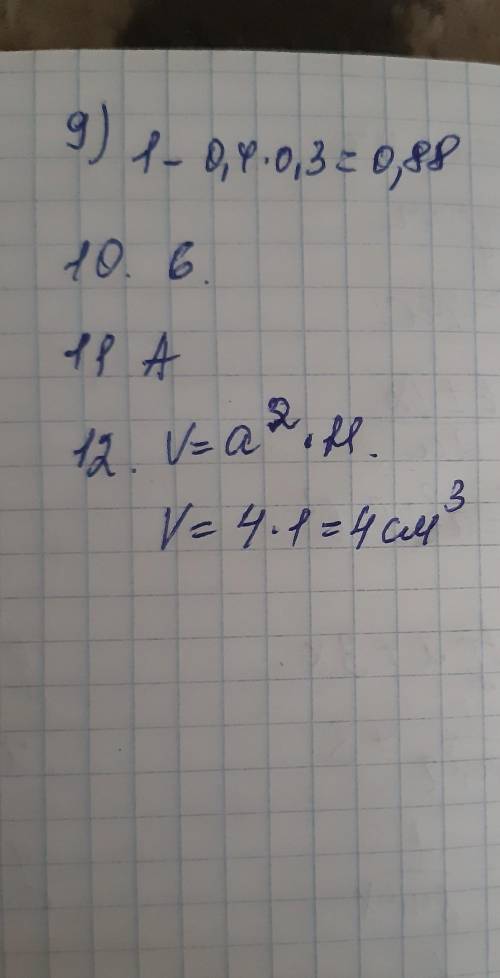 9) 1 - 0,4·0,3 = 0,88
10. 6.
11 A
12. V = a²·H.
V = 4·1 = 4 см³